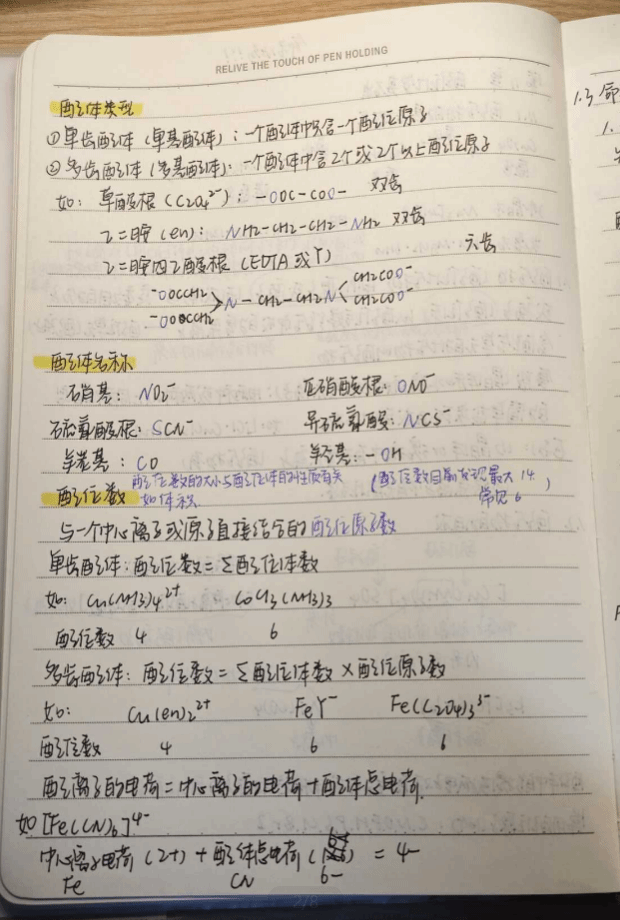 RELIVE THE TOUCH OF PEN HOLDING
配位体类型
①单齿配体（单基配体）：一个配体中只含一个配位原子
②多齿配体（多基配体）：一个配体中含2个或2个以上配位原子
如：草酸根（C2O4²⁻）：-OOC-COO- 双齿
乙二胺（en）：NH2-CH2-CH2-NH2 双齿
乙二胺四乙酸根（EDTA或Y） 六齿
⁻OOCCH2 CH2COO⁻
N-CH2-CH2N
⁻OOCCH2 CH2COO⁻
配位体名称
硝基：NO2⁻ 亚硝酸根：ONO⁻
硫氰酸根：SCN⁻ 异硫氰酸：NCS⁻
羰基：CO 羟基：-OH
配位数 配位数的大小与配位体的性质有关 如体积 （配位数目前发现最大14 常见6）
与一个中心离子或原子直接结合的配位原子数
单齿配体：配位数=Σ配位体数
如：Cu(NH3)4²⁺ CoCl3(NH3)3
配位数 4 6
多齿配体：配位数=Σ配位体数×配位原子数
如： Cu(en)2²⁺ FeY⁻ Fe(C2O4)3³⁻
配位数 4 6 6
配离子的电荷=中心离子的电荷+配体总电荷.
如[Fe(CN)6]4-
中心离子电荷（2+）+配体总电荷（ ）=4-
Fe CN 6-
1.3 命
1.
2/8